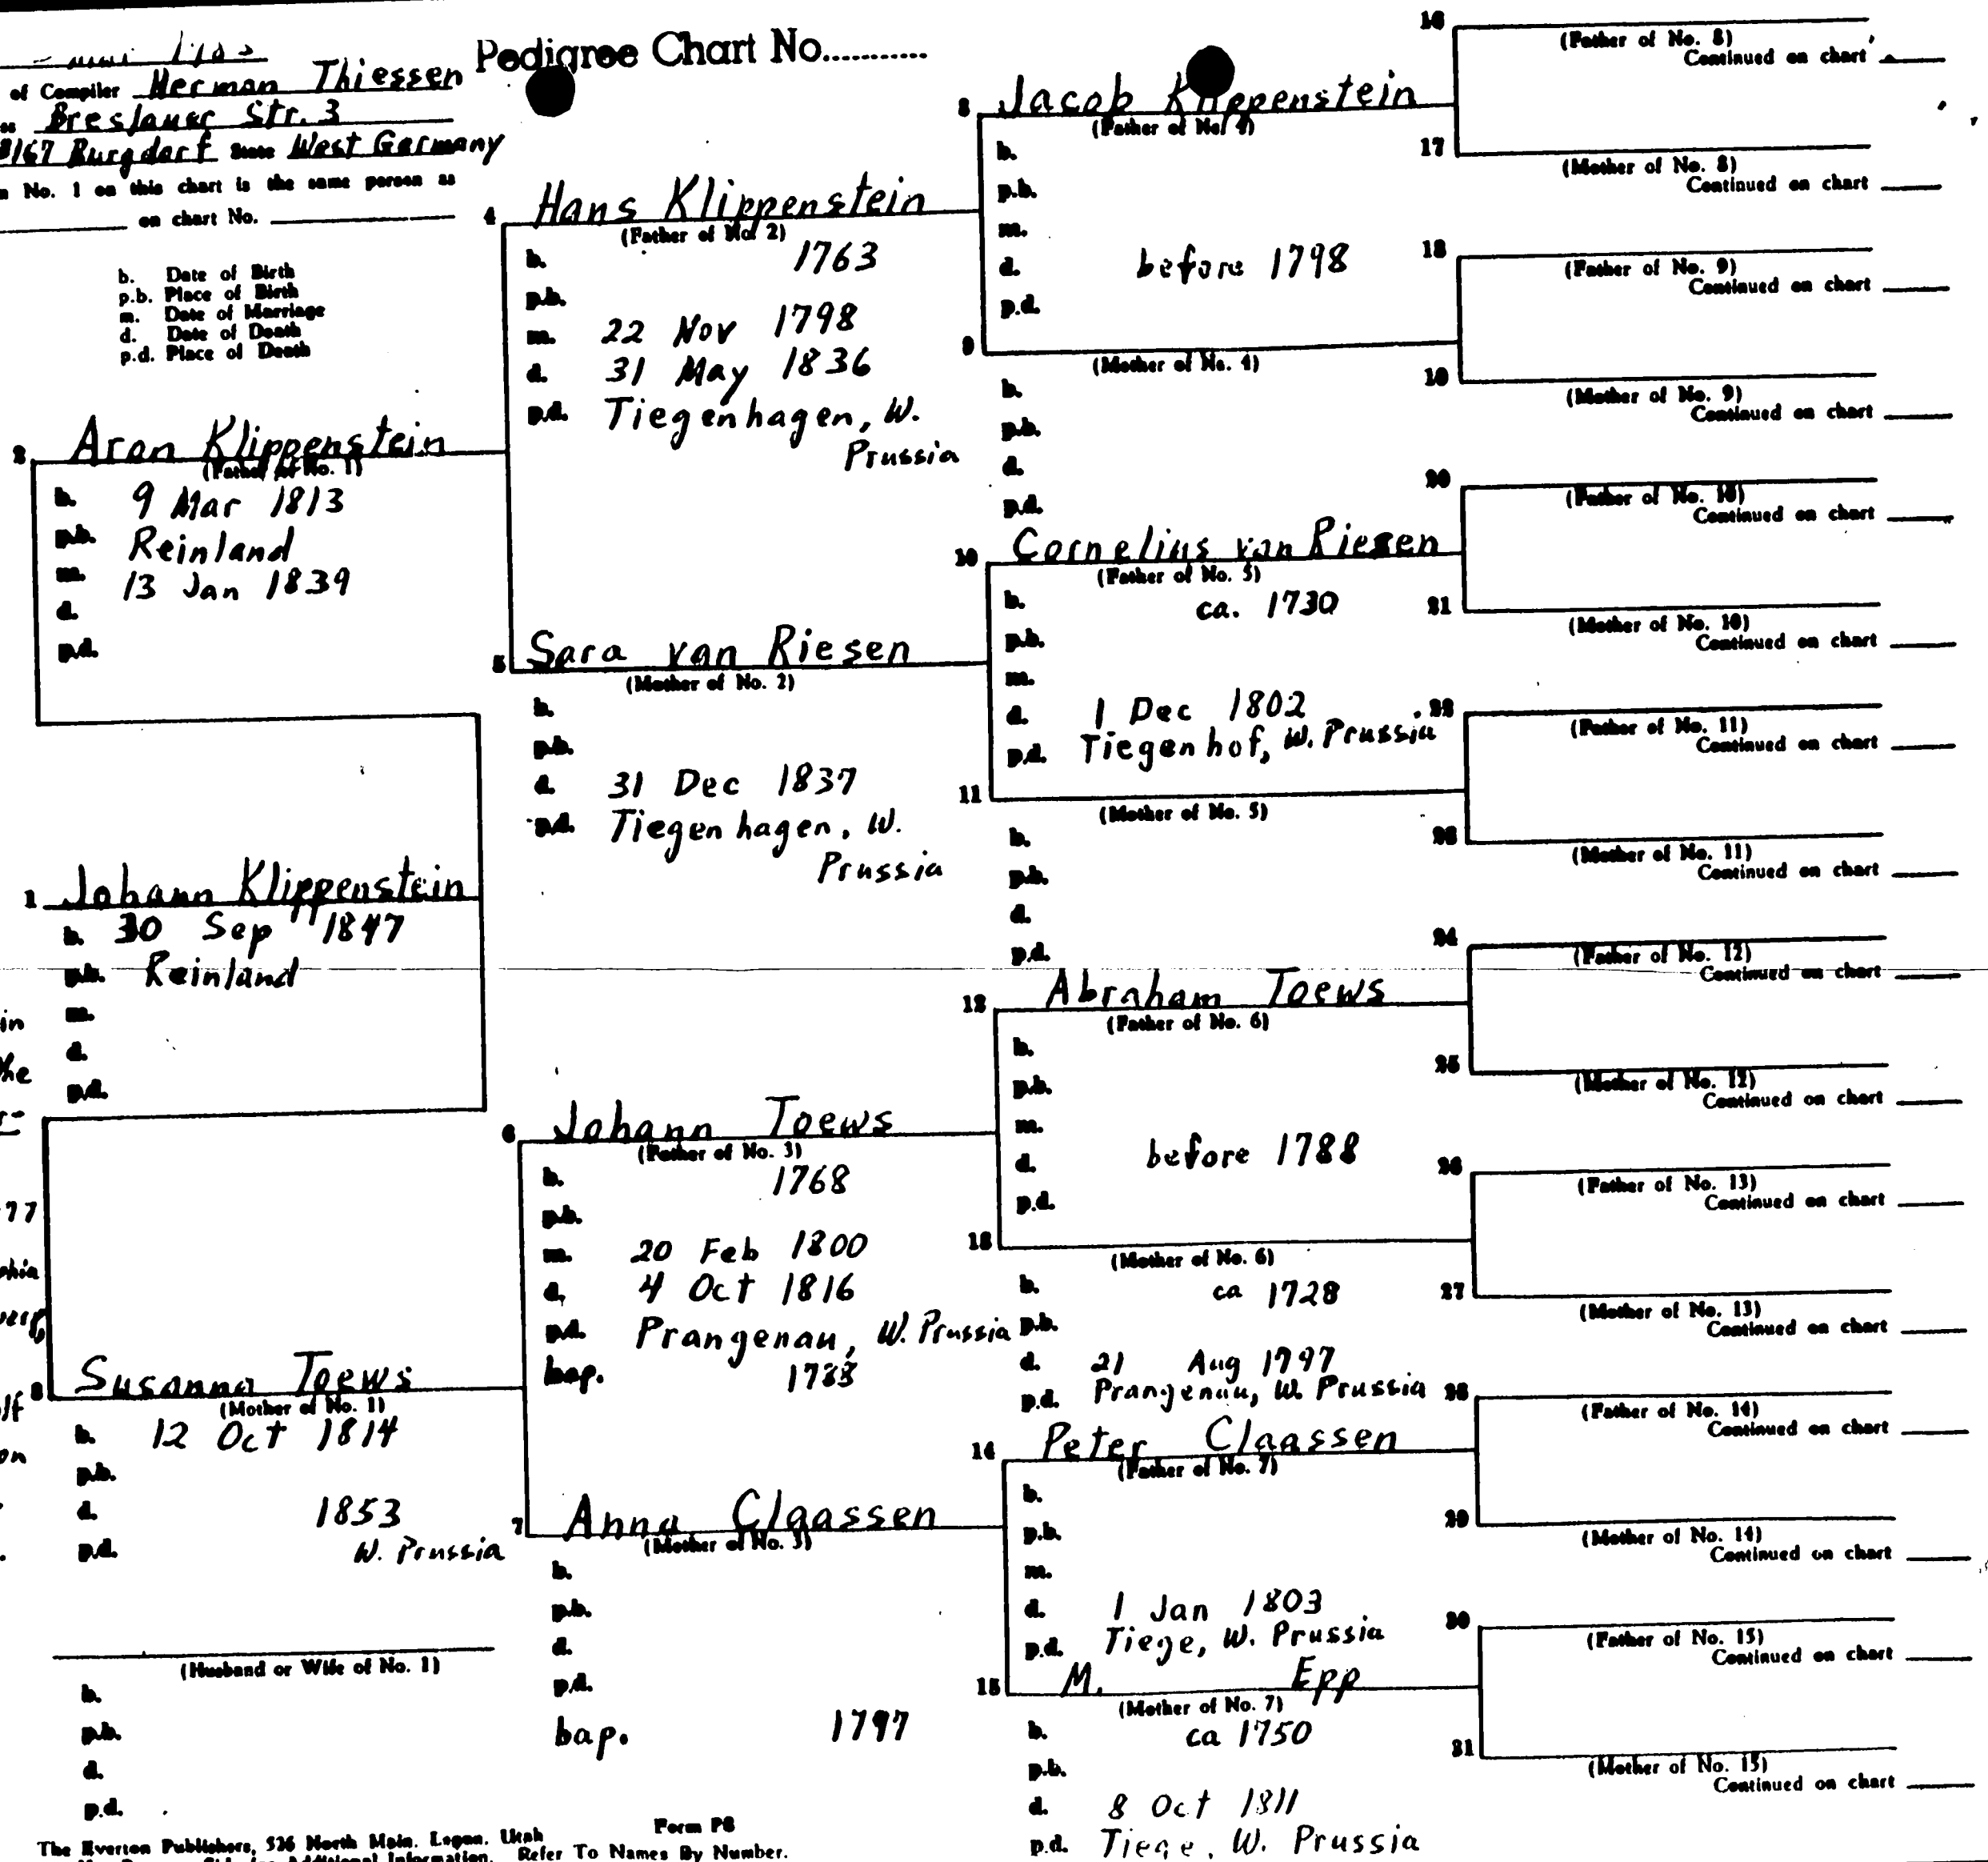 Pedigree Chart No...........
of Compiler Herman Thiessen
Breslauer Str. 3
8167 Burgdorf State West Germany
No. 1 on this chart is the same person as
on chart No.
b. Date of Birth
p.b. Place of Birth
m. Date of Marriage
d. Date of Death
p.d. Place of Death
2 Aron Klippenstein
(Father of No. 1)
b. 9 Mar 1813
p.b. Reinland
m. 13 Jan 1839
d.
p.d.
1 Johann Klippenstein
b. 30 Sep 1847
p.b. Reinland
m.
d.
p.d.
in
the
77
phia
on
3 Susanna Toews
(Mother of No. 1)
b. 12 Oct 1814
p.b.
d. 1853
p.d. W. Prussia
(Husband or Wife of No. 1)
b.
p.b.
d.
p.d.
4 Hans Klippenstein
(Father of No. 2)
b. 1763
p.b.
m. 22 Nov 1798
d. 31 May 1836
p.d. Tiegenhagen, W.
Prussia
5 Sara van Riesen
(Mother of No. 2)
b.
p.b.
d. 31 Dec 1837
p.d. Tiegenhagen, W.
Prussia
6 Johann Toews
(Father of No. 3)
b. 1768
p.b.
m. 20 Feb 1800
d. 4 Oct 1816
p.d. Prangenau, W. Prussia
bap. 1788
7 Anna Claassen
(Mother of No. 3)
b.
p.b.
d.
p.d.
bap. 1797
8 Jacob Klippenstein
(Father of No. 4)
b.
p.b.
m.
d. before 1798
p.d.
9
(Mother of No. 4)
b.
p.b.
d.
p.d.
10 Cornelius van Riesen
(Father of No. 5)
b. ca. 1730
p.b.
m.
d. 1 Dec 1802
p.d. Tiegenhof, W. Prussia
11
(Mother of No. 5)
b.
p.b.
d.
p.d.
12 Abraham Toews
(Father of No. 6)
b.
p.b.
m.
d. before 1788
p.d.
13
(Mother of No. 6)
b. ca 1728
p.b.
d. 21 Aug 1797
p.d. Prangenau, W. Prussia
14 Peter Claassen
(Father of No. 7)
b.
p.b.
m.
d. 1 Jan 1803
p.d. Tiege, W. Prussia
15 M. Epp
(Mother of No. 7)
b. ca 1750
p.b.
d. 8 Oct 1811
p.d. Tiege, W. Prussia
16
(Father of No. 8)
Continued on chart
17
(Mother of No. 8)
Continued on chart
18
(Father of No. 9)
Continued on chart
19
(Mother of No. 9)
Continued on chart
20
(Father of No. 10)
Continued on chart
21
(Mother of No. 10)
Continued on chart
22
(Father of No. 11)
Continued on chart
23
(Mother of No. 11)
Continued on chart
24
(Father of No. 12)
Continued on chart
25
(Mother of No. 12)
Continued on chart
26
(Father of No. 13)
Continued on chart
27
(Mother of No. 13)
Continued on chart
28
(Father of No. 14)
Continued on chart
29
(Mother of No. 14)
Continued on chart
30
(Father of No. 15)
Continued on chart
31
(Mother of No. 15)
Continued on chart
The Everton Publishers, 526 North Main, Logan, Utah
Form P8
Additional Information. Refer To Names By Number.